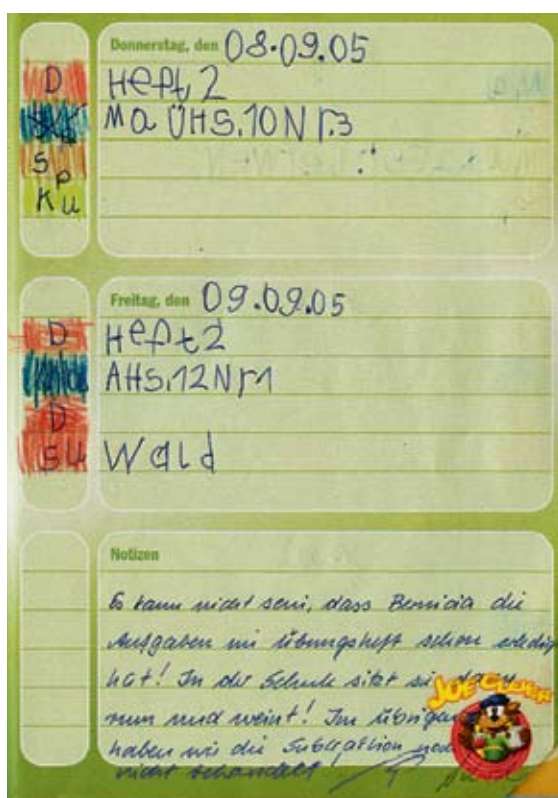 Donnerstag, den 08.09.05
D Heft 2
Ma ÜHS.10Nr.3
Sp
Ku
Freitag, den 09.09.05
D Heft2
AHS.12Nr1
D
SU Wald
Notizen
Es kann nicht sein, dass die
Aufgaben im Übungsheft schon erledig
hat! In der Schule sitzt sie
rum und weint! Im Übrigen
haben wir die Subtraktion noch
nicht behandelt!
JOE CLEVER